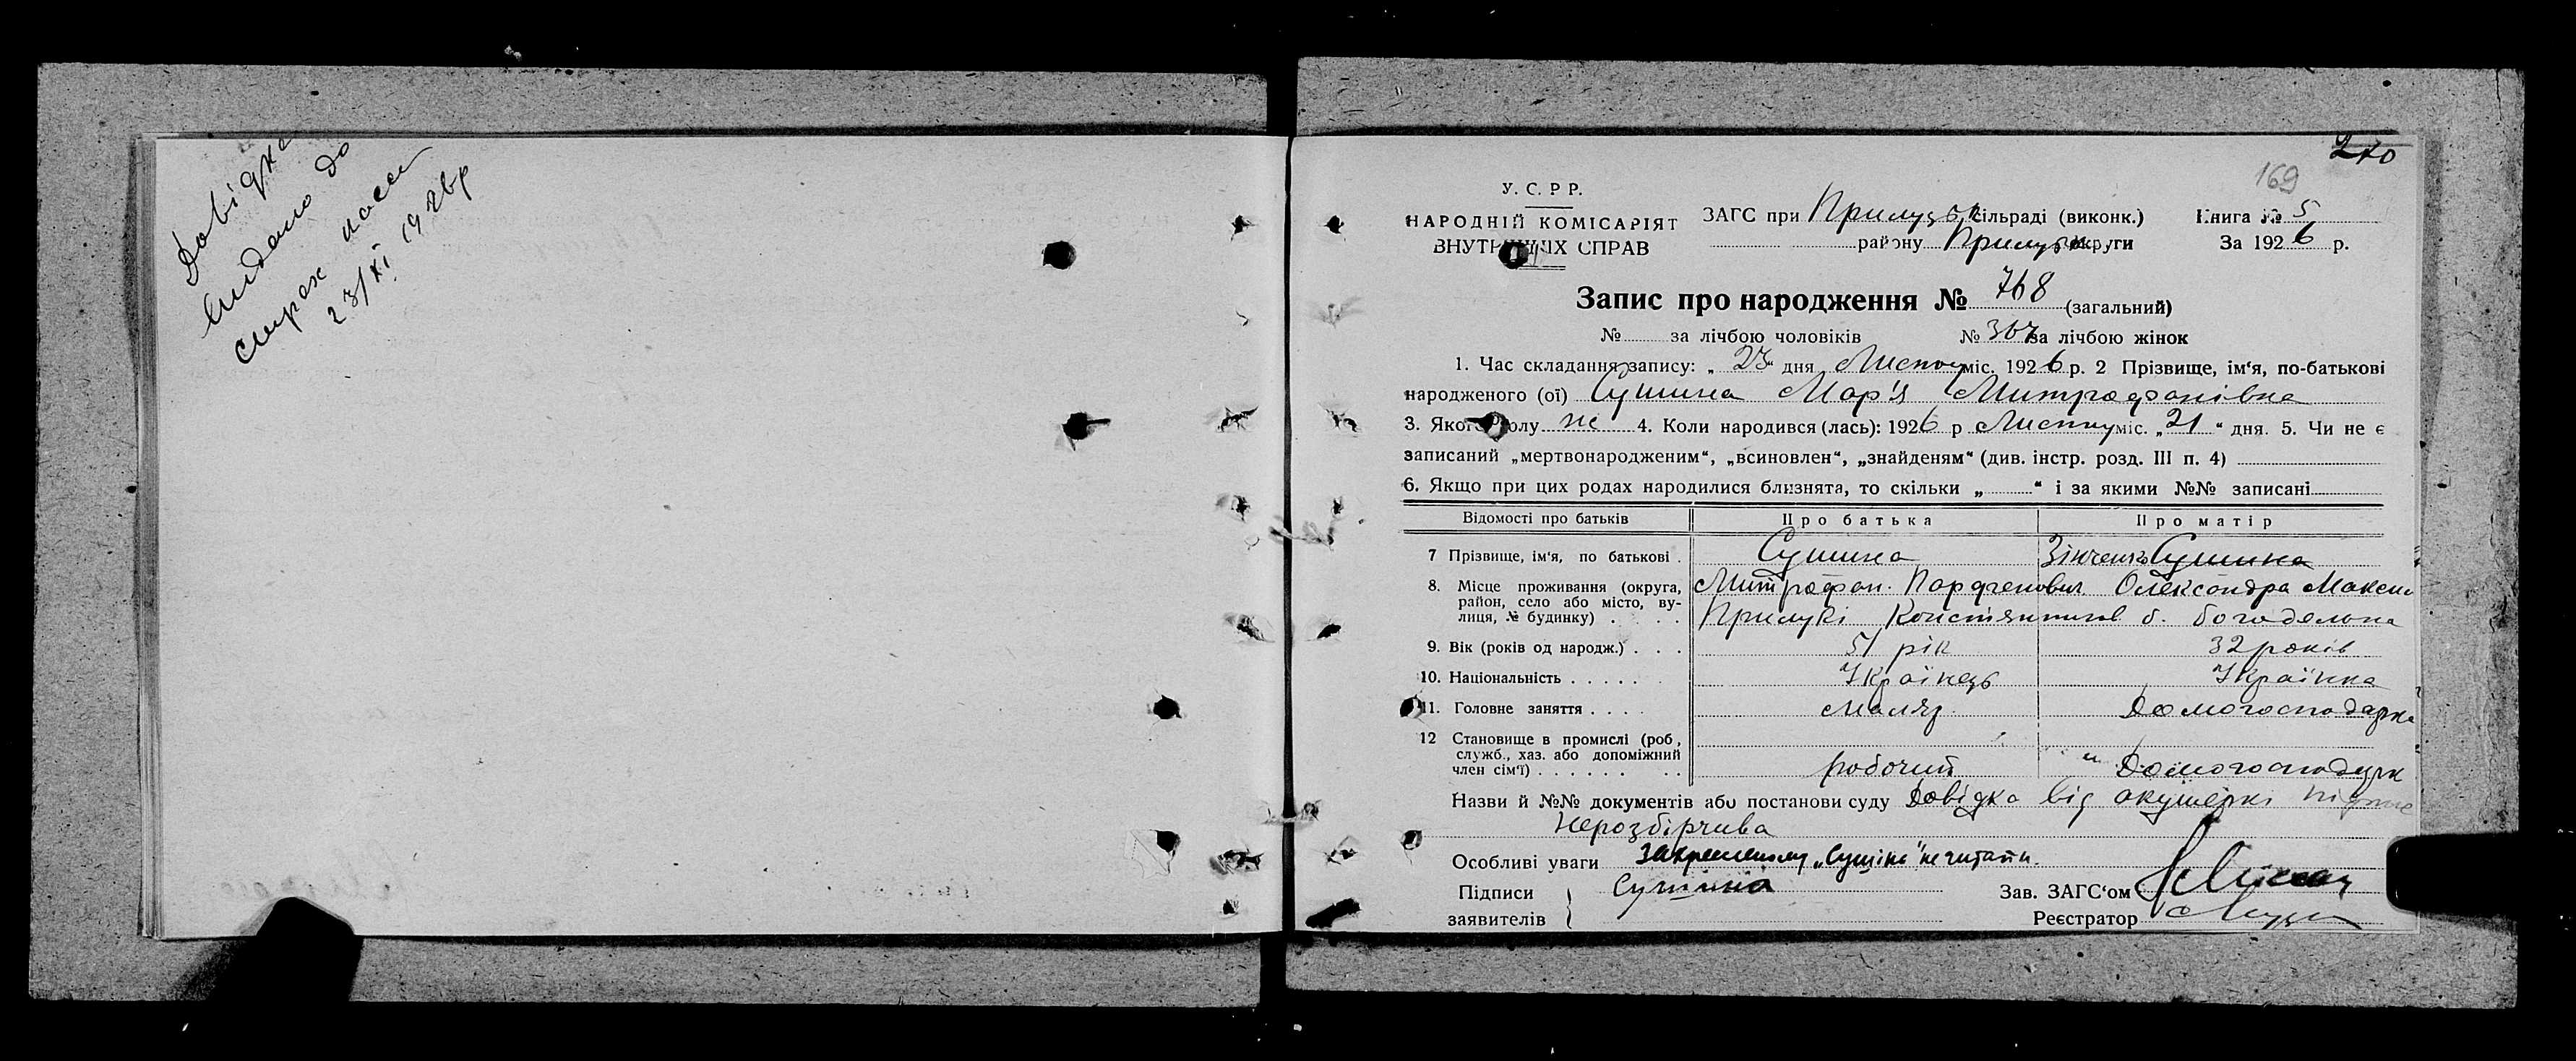 Довідка
видано до
страх каси
23/XI 1926 р
270
169
У. С. Р Р.
НАРОДНІЙ КОМІСАРІЯТ
ВНУТРІШНІХ СПРАВ
ЗАГС при Прилуцьк сільраді (виконк.) Книга № 5
району Прилуцьк округи За 1926 р.
Запис про народження № 768 (загальний)
№ за лічбою чоловіків № 367 за лічбою жінок
1. Час складання запису: „ 23 " дня Листоп міс. 1926 р. 2 Прізвище, ім'я, по-батькові
народженого (ої) Сушина Мар'я Митрофанівна
3. Якого полу ж 4. Коли народився (лась): 1926 р Листоп міс. „ 21 " дня. 5. Чи не є
записаний „мертвонародженим", „всиновлен", „знайденям" (див. інстр. розд. III п. 4)
6. Якщо при цих родах народилися близнята, то скільки „ " і за якими №№ записані
Відомості про батьків Про батька Про матір
7 Прізвище, ім'я, по батькові . Сушина Зінченко Сушина
8. Місце проживання (округа, район, село або місто, ву-лиця, № будинку) . . . . Митрофан Парфенович Олександра Макси
Прилукі Константинов б. богодельна
9. Вік (років од народж.) . . . 51 рік 32 років
10. Національність . . . . . Українець Українка
11. Головне заняття . . . . Маляр Домогосподарка
12 Становище в промислі (роб,
служб., хаз. або допоміжний
член сім'ї) . . . . . . . . робочий Домогосподарк
Назви й №№ документів або постанови суду Довідка від акушеркі підпис
нерозбірчива
Особливі уваги закресленому „Сушина" не читати.
Підписи Сушина Зав. ЗАГС'ом
заявителів Реєстратор